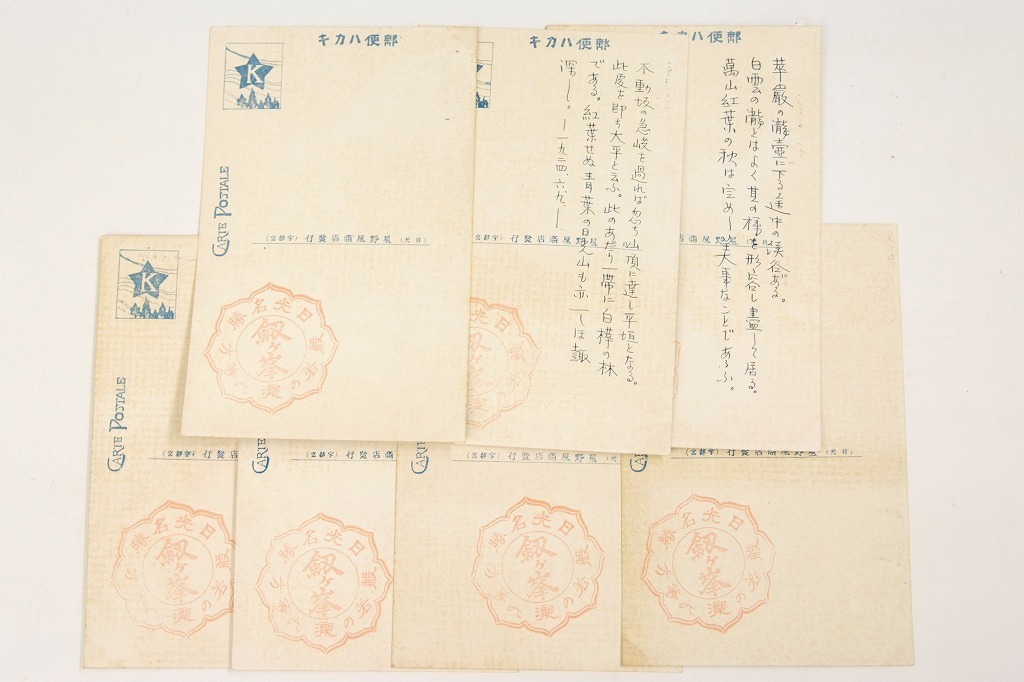 郵便ハカキ
K
CARTE POSTALE
(日光) 星野屋商店發行 (宇都宮)
日光名勝
劔ヶ峯
郵便ハカキ
不動坂の急峻を過れば忽ち山頂に達し平垣となる。
此處を即ち大平と云ふ。此のあたり一帯に白樺の林
である。紅葉せぬ青葉の日光山も亦一しほ趣
深し。―一九二四、六、九、―
星野屋商店發行 (宇都宮)
劔ヶ峯
郵便ハカキ
華嚴の瀧壺に下る途中の渓谷ぁる。
白雲の瀧とはよく其の様を形容し盡して居る。
萬山紅葉の秋は定めし美事なことであふ。
星野屋商店發行 (宇都宮)
K
CARTE POSTALE
發行 (宇都宮)
日光名勝
劔ヶ峯
CARTE
商店發行 (宇都宮)
日光名勝
劔ヶ峯
CARTE
星野屋商店發行 (宇都宮)
日光名勝
劔ヶ峯
(日光) 星野屋商店發行 (宇都宮)
日光名勝
劔ヶ峯